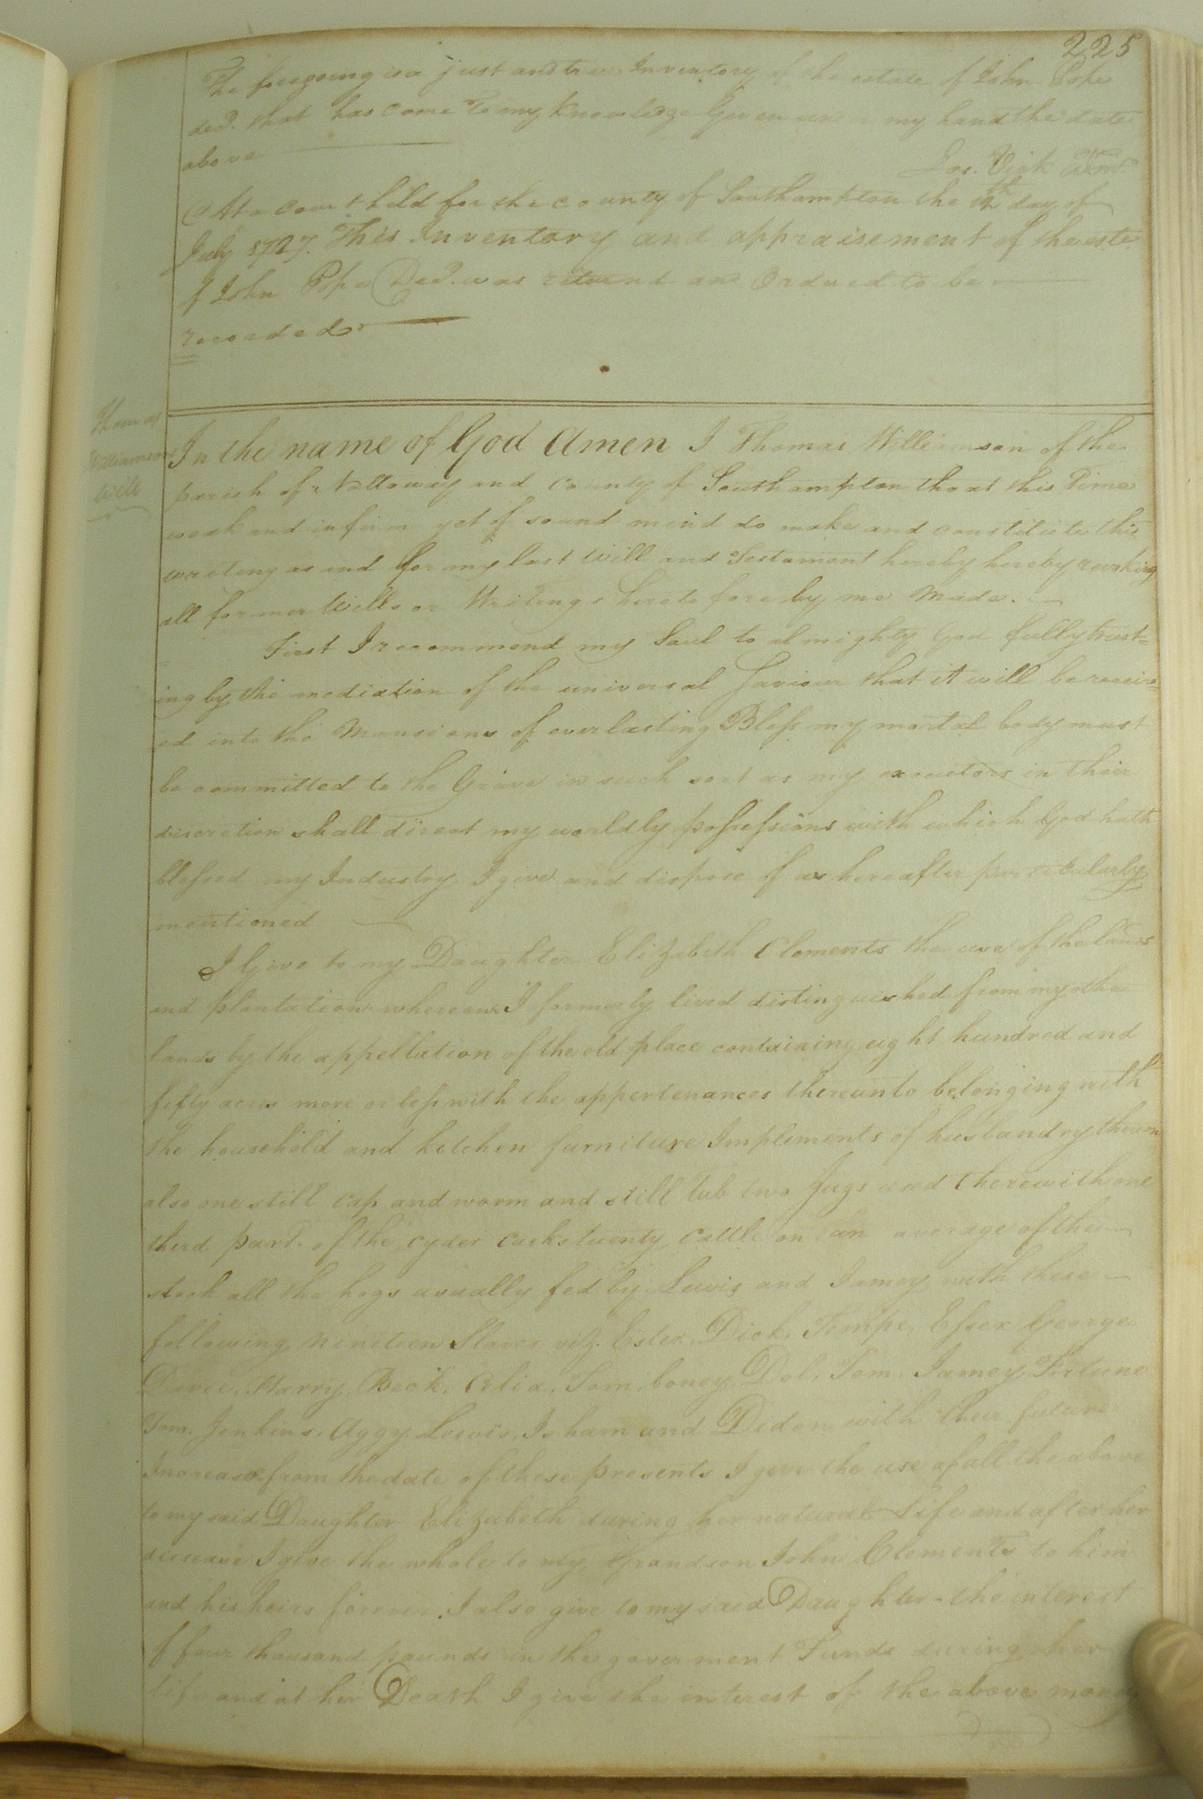 225
The foregoing is a just and true Inventory of the estate of John Pope
decd. that has come to my knowledge Given under my hand the date
above
Jos. Vick Adm.
At a court held for the county of Southampton the day of
July 1787. This Inventory and appraisement of the este.
of John Pope Decd. was returnd and Ordered to be
recorded
Thomas
Williamson
Will
In the name of God Amen I Thomas Williamson of the
parish of Nottoway and County of Southampton tho at this Time
weak and infirm yet of sound mind do make and constitute this
writing as and for my last Will and Testament hereby hereby revoking
all former Wills or Writings heretofore by me Made.
First I recommend my Soul to almighty God fully trust=
ing by the mediation of the universal Saviour that it will be receiv=
ed into the Mansions of everlasting Bless my mortal body must
be committed to the Grave in such sort as my executors in their
discretion shall direct my worldly possessions with which God hath
blessed my Industry I give and dispose of as hereafter particularly
mentioned
I Give to my Daughter Elizabeth Clements the use of the lands
and plantation whereon I formerly lived distinguished from my other
lands by the appellation of the old place containing eight hundred and
fifty acres more or less with the appertenances thereunto belonging with
the household and kitchen furniture Impliments of husbandry thereon
also one still cap and worm and still tub two Jugs used therewith one
third part of the cyder casks twenty Cattle on an average of the
stock all the hogs usually fed by Lewis and Jamey with these
following nineteen Slaves viz. Ester, Dick, Tempe, Essex George
Davie, Harry, Beck, Celia, Tom boney, Dol, Tom, Jamey, Fortune
Tom, Jenkins, Aggy, Lewis, Isham and Didon with their future
Increase from the date of these presents I give the use of all the above
to my said Daughter Elizabeth during her natural Life and after her
decease I give the whole to my Grandson John Clements to him
and his heirs forever. I also give to my said Daughter the interest
of four thousand pounds in the goverment Funds during her
life and at her Death I give the interest of the above money